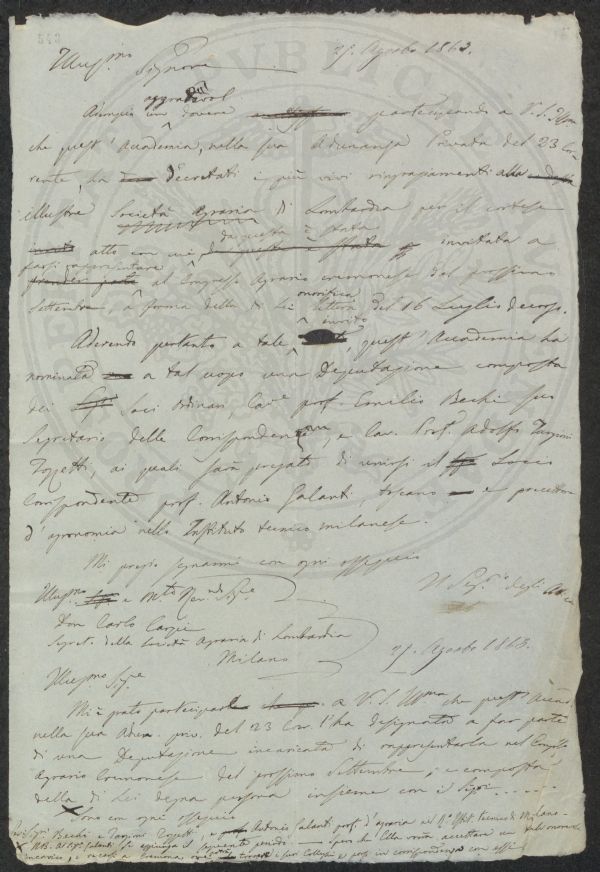 Illus.mo Signore 31. Agosto 1863.
aggradevol
Adempio un dovere partecipando a V. S. Ill.ma
che quest' Accademia, nella sua Adunanza Privata del 23 Cor
rente, ha decretati i più vivi ringraziamenti alla
illustre Società Agraria di Lombardia per il cortese
da questa è stata
atto con cui invitata a
farsi rappresentare
prender parte al Congresso Agrario cremonese del prossimo
onorifica
settembre, a forma della di Lei lettera del 16 Luglio decorso.
invito
Aderendo pertanto a tale quest' Accademia ha
nominata a tal uopo una Deputazione composta
dei Soci Ordinari, Cav.e prof. Emilio Bechi suo
Segretario delle Corrispondenze, e Cav. Prof. Adolfo Targioni
Tozzetti, ai quali sarà pregato di unirsi il Socio
Corrispondente prof. Antonio Galanti, toscano e precettore
d'agronomia nello Instituto tecnico milanese.
Mi pregio segnarmi con ogni ossequio
Illus.mo e M.to Rev.do Sig.re Il Seg.rio degli Atti
Don Carlo
Segret. della Società Agraria di Lombardia
Milano 31. Agosto 1863.
Illus.mo Sig.re
Mi è grato partecipare a V. S. Ill.ma che quest' Accad.
nella sua Adun. priv. del 23 Cor. l'ha designato a far parte
di una Deputazione incaricata di rappresentarla nel Congresso
Agrario Cremonese del prossimo Settembre, e composta
della di Lei degna persona insieme con il Sig.r
Sono con ogni ossequio
Sig.i Bechi e Targioni Tozzetti, e Antonio Galanti prof. d'agraria nel R.o Istit. Tecnico di Milano.
N.B. Al Sig. Galanti si aggiunga il seguente periodo perché Ella voglia accettare un tale onorevole
incarico, e recarsi a Cremona ove potrà trovare i suoi Colleghi e porsi in corrispondenza con essi